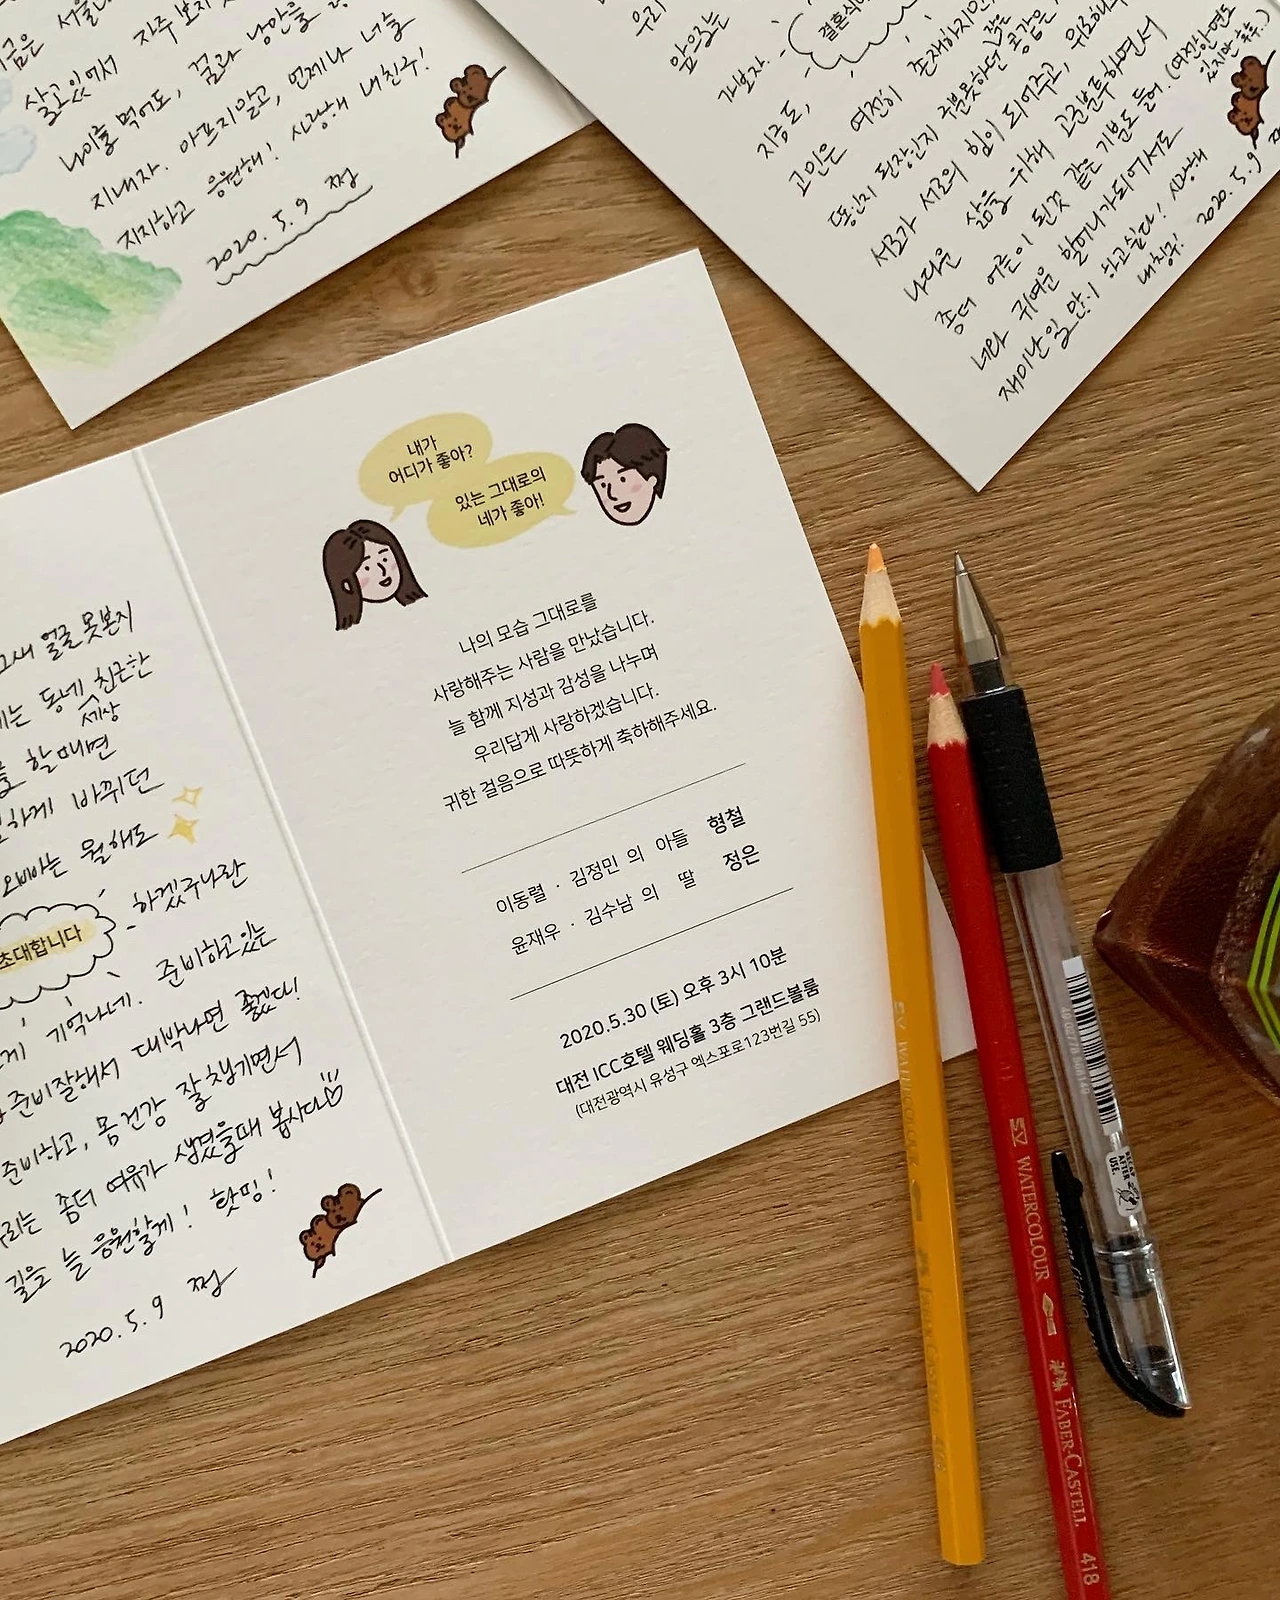 살고있어서 자주 보지
나이를 먹어도, 결과 낭만을
지내자. 아프지말고, 언제나 너를
지지하고 응원해! 사랑해 내친구!
2020. 5. 9 쩡
우리
앞으로는
가보자.
결혼식
지금도,
고민은 여전히 존재하지만,
똥인지 된장인지 구분못하던 젊은
서로가 서로의 힘이 되어주고, 위로해주
나다운 삶을 위해 고군분투하면서
좀더 어른이 된것 같은 기분도 들어. (여전하면도
있지만 후후.)
너랑 귀여운 할머니가되어서도
재미난일 많이 하고싶다! 사랑해
내칭구! 2020. 5. 9
내가
어디가 좋아?
있는 그대로의
네가 좋아!
나의 모습 그대로를
사랑해주는 사람을 만났습니다.
늘 함께 지성과 감성을 나누며
우리답게 사랑하겠습니다.
귀한 걸음으로 따뜻하게 축하해주세요.
이동렬 · 김정민 의 아들 형철
윤재우 · 김수남 의 딸 정은
2020.5.30 (토) 오후 3시 10분
대전 ICC호텔 웨딩홀 3층 그랜드볼룸
(대전광역시 유성구 엑스포로123번길 55)
그새 얼굴 못본지
동네 친근한
세상
할때면
하게 바뀌던
오빠는 뭘해도
초대합니다
하겠구나란
기억나네. 준비하고있는
준비잘해서 대박나면 좋겠다!
준비하고, 몸 건강 잘 챙기면서
우리는 좀더 여유가 생겼을때 봅시다
길을 늘 응원할게! 핫띵!
2020. 5. 9 쩡
RECAP
AFTER
USE.
WATERCOLOUR
FABER-CASTELL
418